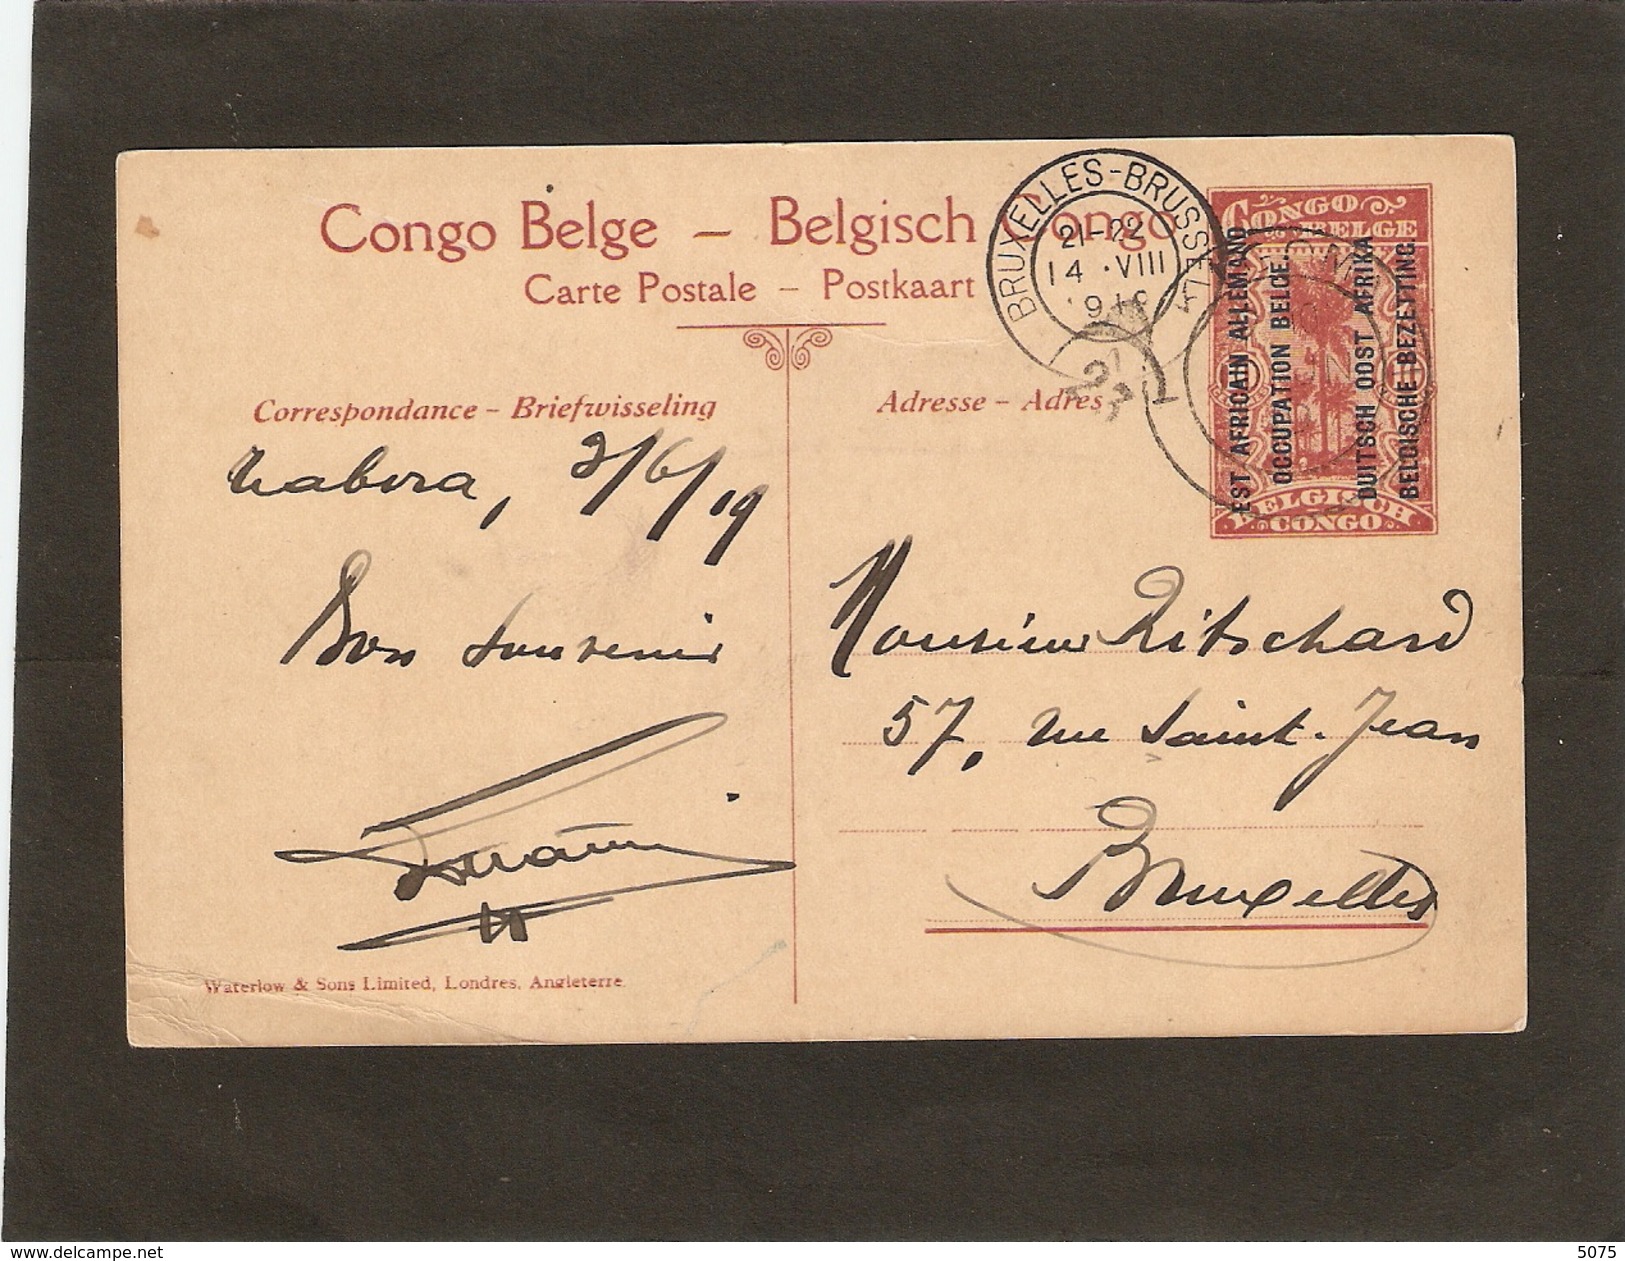 Congo Belge – Belgisch Congo
Carte Postale – Postkaart
BRUXELLES-BRUSSEL
21-22
14 · VIII
CONGO
BELGE
EST AFRICAIN ALLEMAND
OCCUPATION BELGE.
DUITSCH OOST AFRIKA
BELGISCHE BEZETTING.
BELGISCH
CONGO
Correspondance – Briefwisseling
Adresse – Adres
Tabora, 3/6/19
Bon souvenir
Monsieur Ritschard
57, rue Saint-Jean
Bruxelles
Waterlow & Sons Limited, Londres, Angleterre.
www.delcampe.net
5075